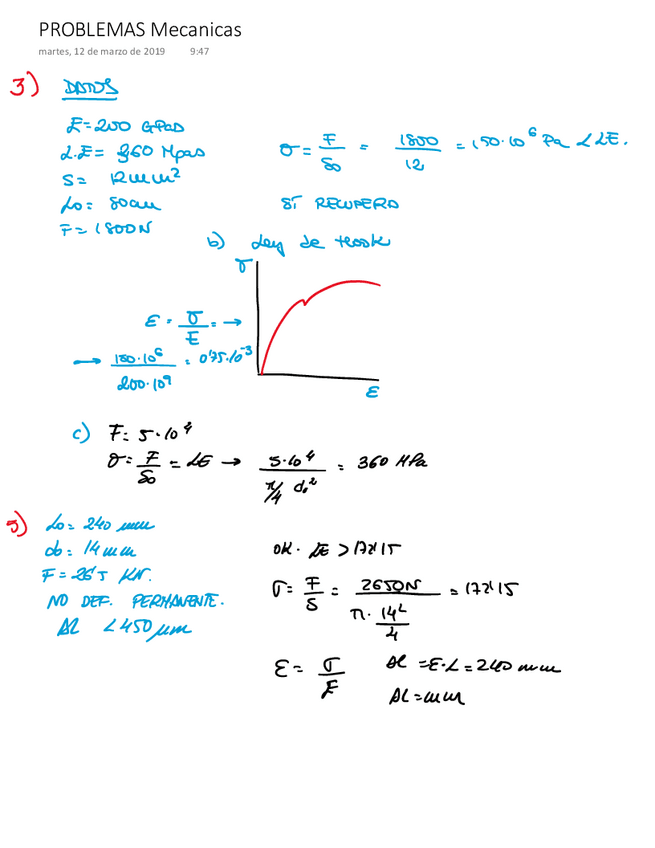 PROBLEMAS Mecanicas
martes, 12 de marzo de 2019 9:47
3) DATOS
E = 200 GPas
L.E = 360 Mpas
S = 12 mm²
Lo = 80cm
F = 1800N
σ = F/So = 1800/12 = 150·10⁶ Pa < LE.
SÍ RECUPERA
b) Ley de Hooke
σ
ε = σ/E = →
→ 150·10⁶/200·10⁹ = 0'75·10⁻³
ε
c) F = 5·10⁴
σ = F/So = LE → 5·10⁴/π/4 do² = 360 MPa
5) Lo = 240 mm
do = 14 mm
F = 26'5 KN.
NO DEF. PERMANENTE.
Δl < 450 μm
OK. LE > 172'15
σ = F/S = 2650N/π·14²/4 = 172'15
ε = σ/E Δl = E·L = 240 mm
Δl = mm